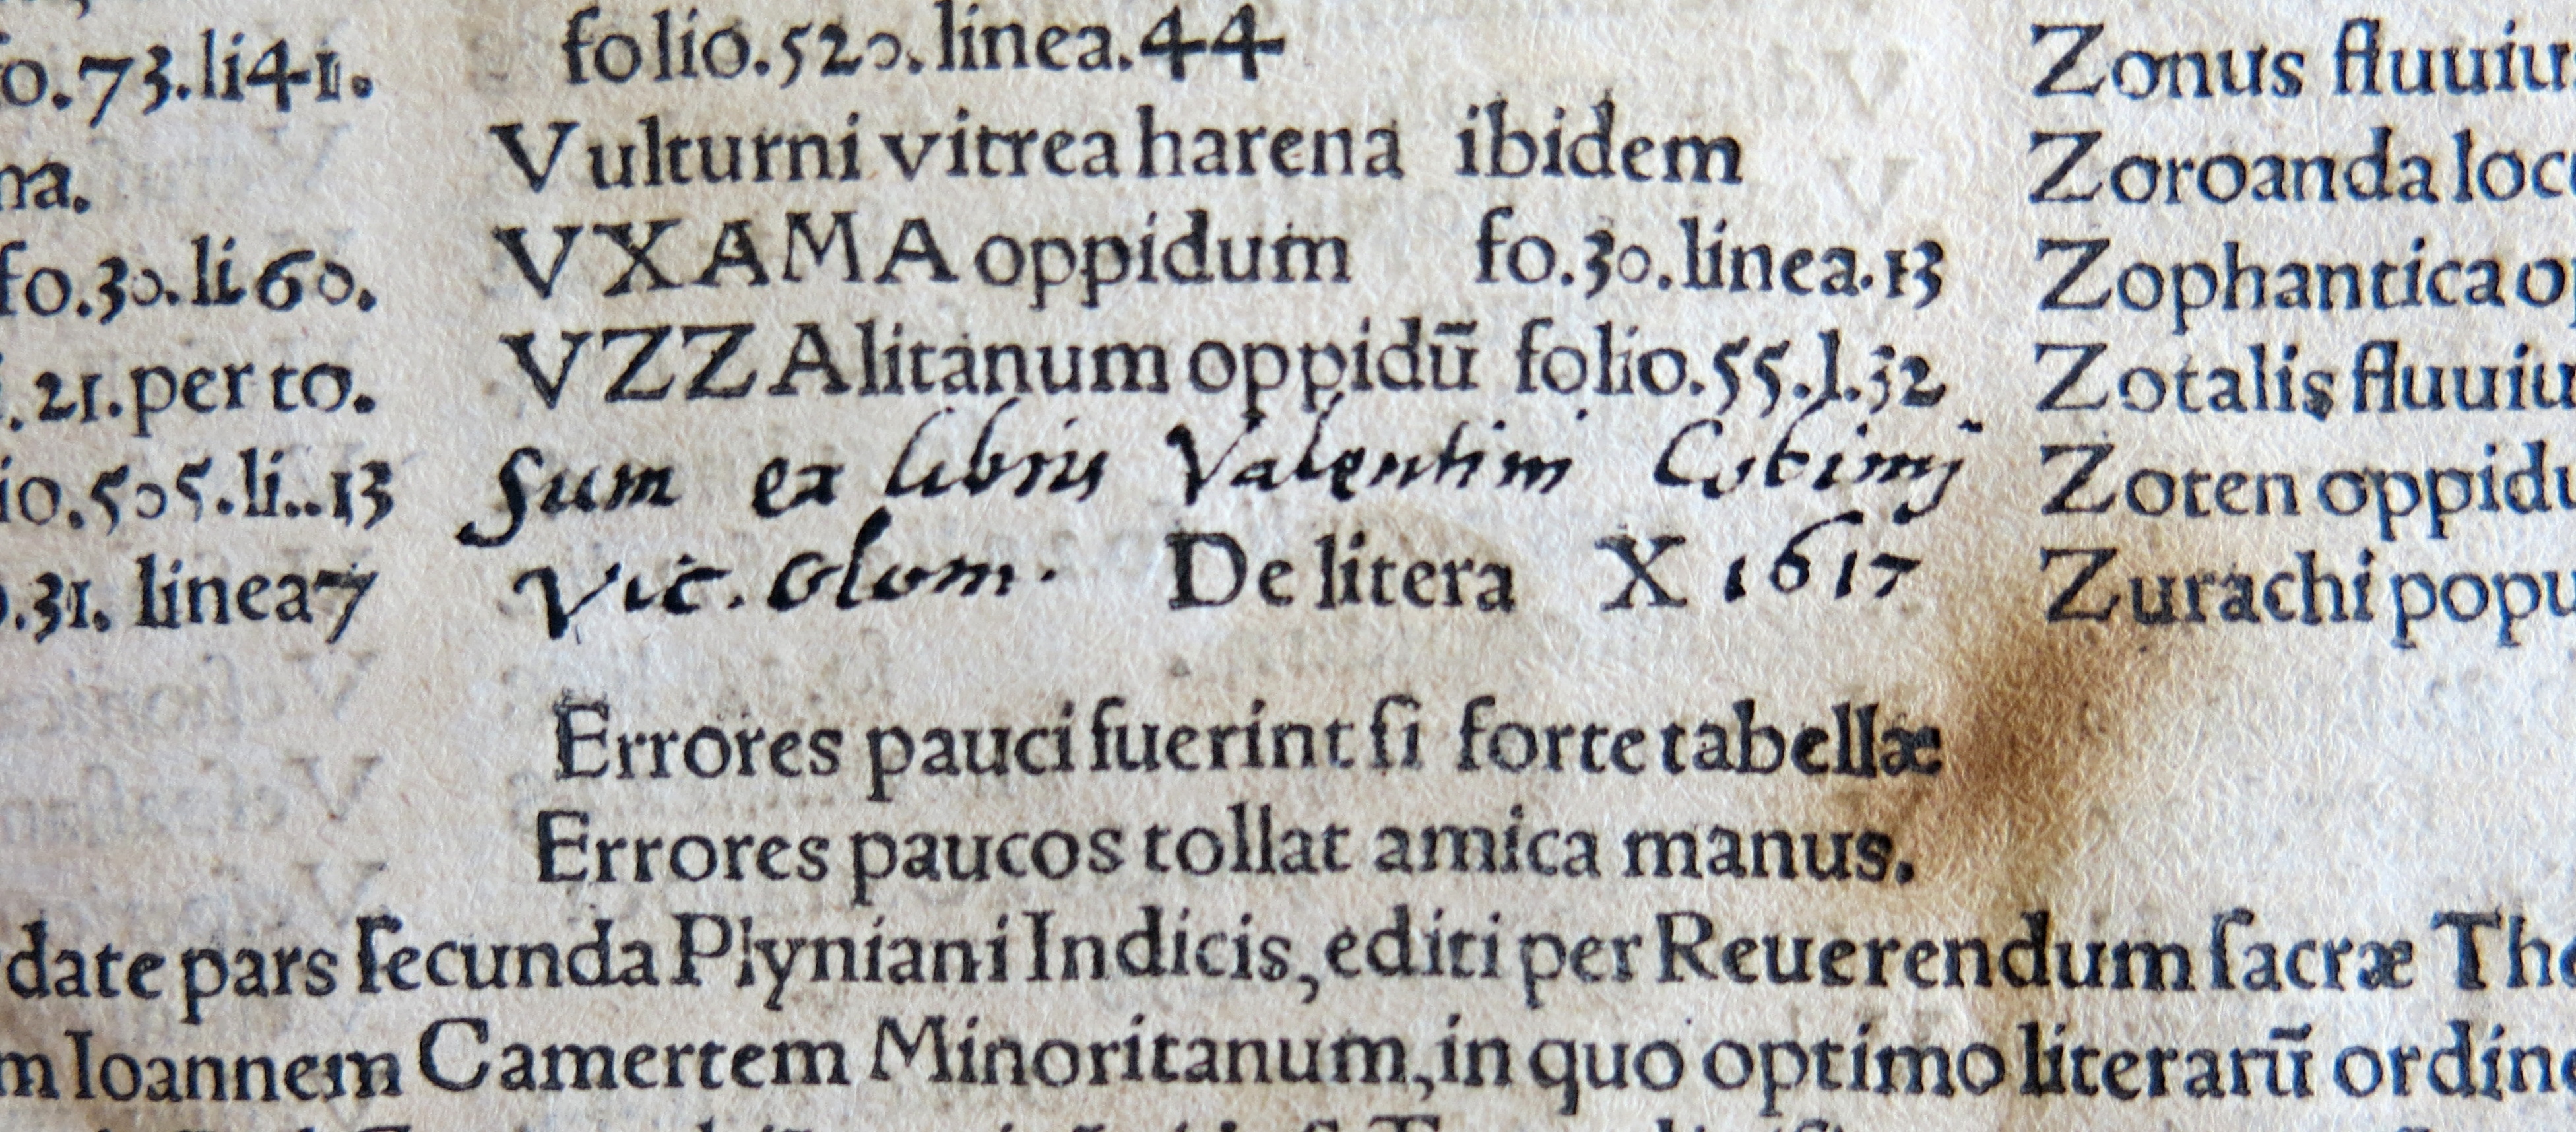 fo.73.li41.
na.
fo.30.li60.
.21.per to.
io.505.li..13
.31. linea7
folio.520.linea.44
Vulturni vitrea harena ibidem
VXAMA oppidum fo.30.linea.13
VZZAlitanum oppidū folio.55.l.32
Sum ex libris Valentini
Vic. Olom. De litera X 1617
Zonus fluuiu
Zoroanda loc
Zophantica o
Zotalis fluuiu
Zoten oppidu
Zurachi popu
Errores pauci fuerint ſi forte tabellæ
Errores paucos tollat amica manus.
date pars ſecunda Plyniani Indicis, editi per Reuerendum ſacræ The
m Ioannem Camertem Minoritanum, in quo optimo literarū ordine